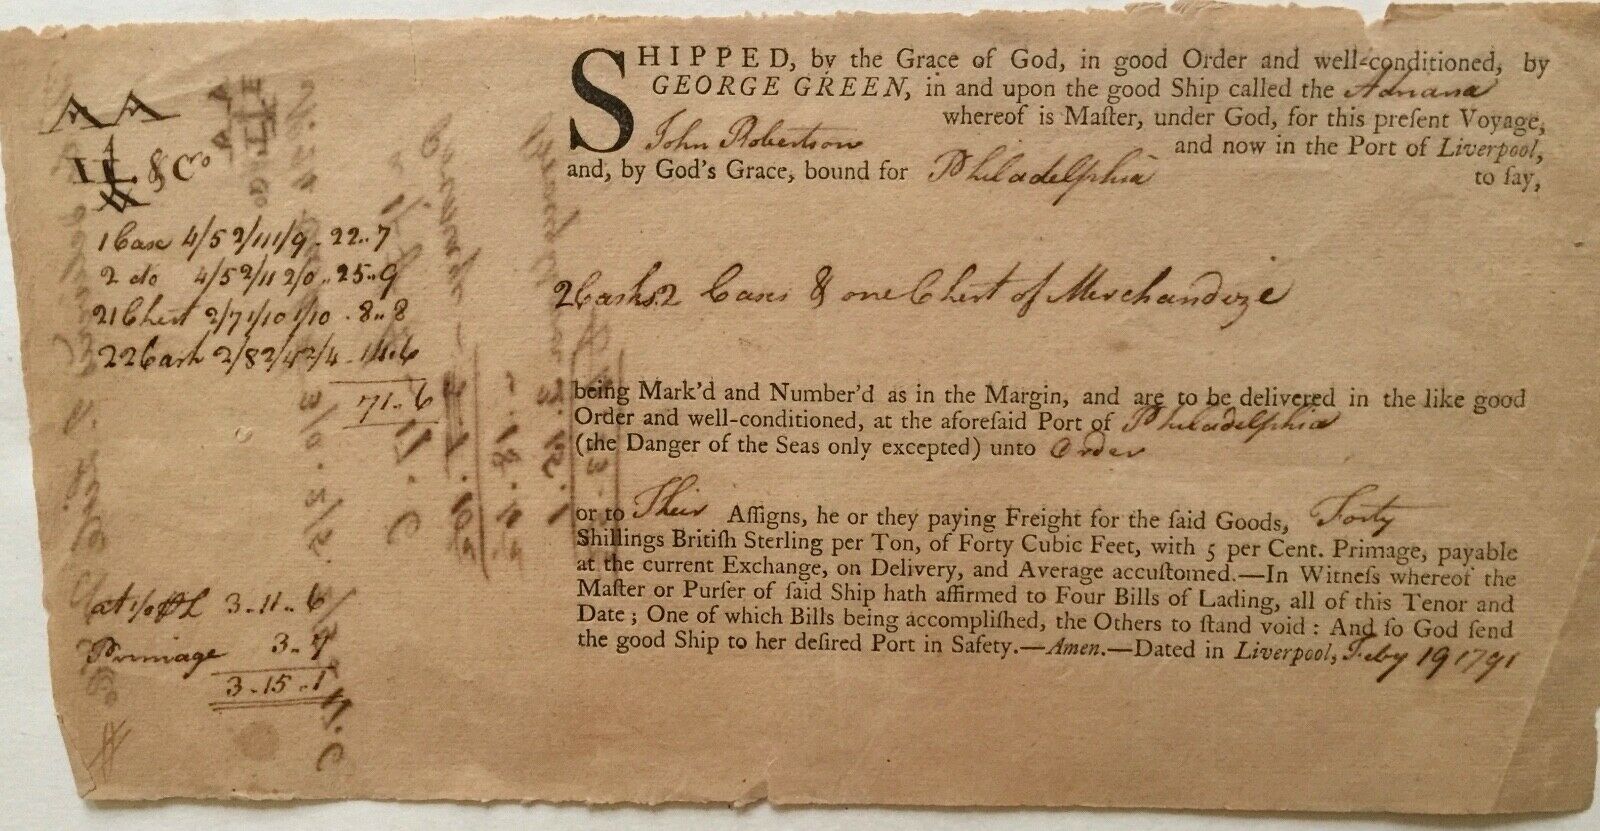 SHIPPED, by the Grace of God, in good Order and well-conditioned, by
GEORGE GREEN, in and upon the good Ship called the Adriana
whereof is Maſter, under God, for this preſent Voyage,
John Robertson
and now in the Port of Liverpool,
and, by God's Grace, bound for Philadelphia to ſay,
2 Casks. 2 Cases & one Chest of Merchandize
being Mark'd and Number'd as in the Margin, and are to be delivered in the like good
Order and well-conditioned, at the aforeſaid Port of Philadelphia
(the Danger of the Seas only excepted) unto Order
or to Their Aſſigns, he or they paying Freight for the ſaid Goods, Forty
Shillings Britiſh Sterling per Ton, of Forty Cubic Feet, with 5 per Cent. Primage, payable
at the current Exchange, on Delivery, and Average accuſtomed.—In Witneſs whereof the
Maſter or Purſer of ſaid Ship hath affirmed to Four Bills of Lading, all of this Tenor and
Date; One of which Bills being accompliſhed, the Others to ſtand void: And ſo God ſend
the good Ship to her deſired Port in Safety.—Amen.—Dated in Liverpool, Feby 19 1791
AA
& Co
1 Case 4/5 2/11 1/9 - 22..7
2 do 4/5 2/11 2/0 .. 25..9
21 Chest 2/7 1/10 1/10 - 8..8
22 Cask 2/8 2/4 2/4 - 14..6
71..6
at 1/0 3..11..6
Primage 3..7
3..15..1